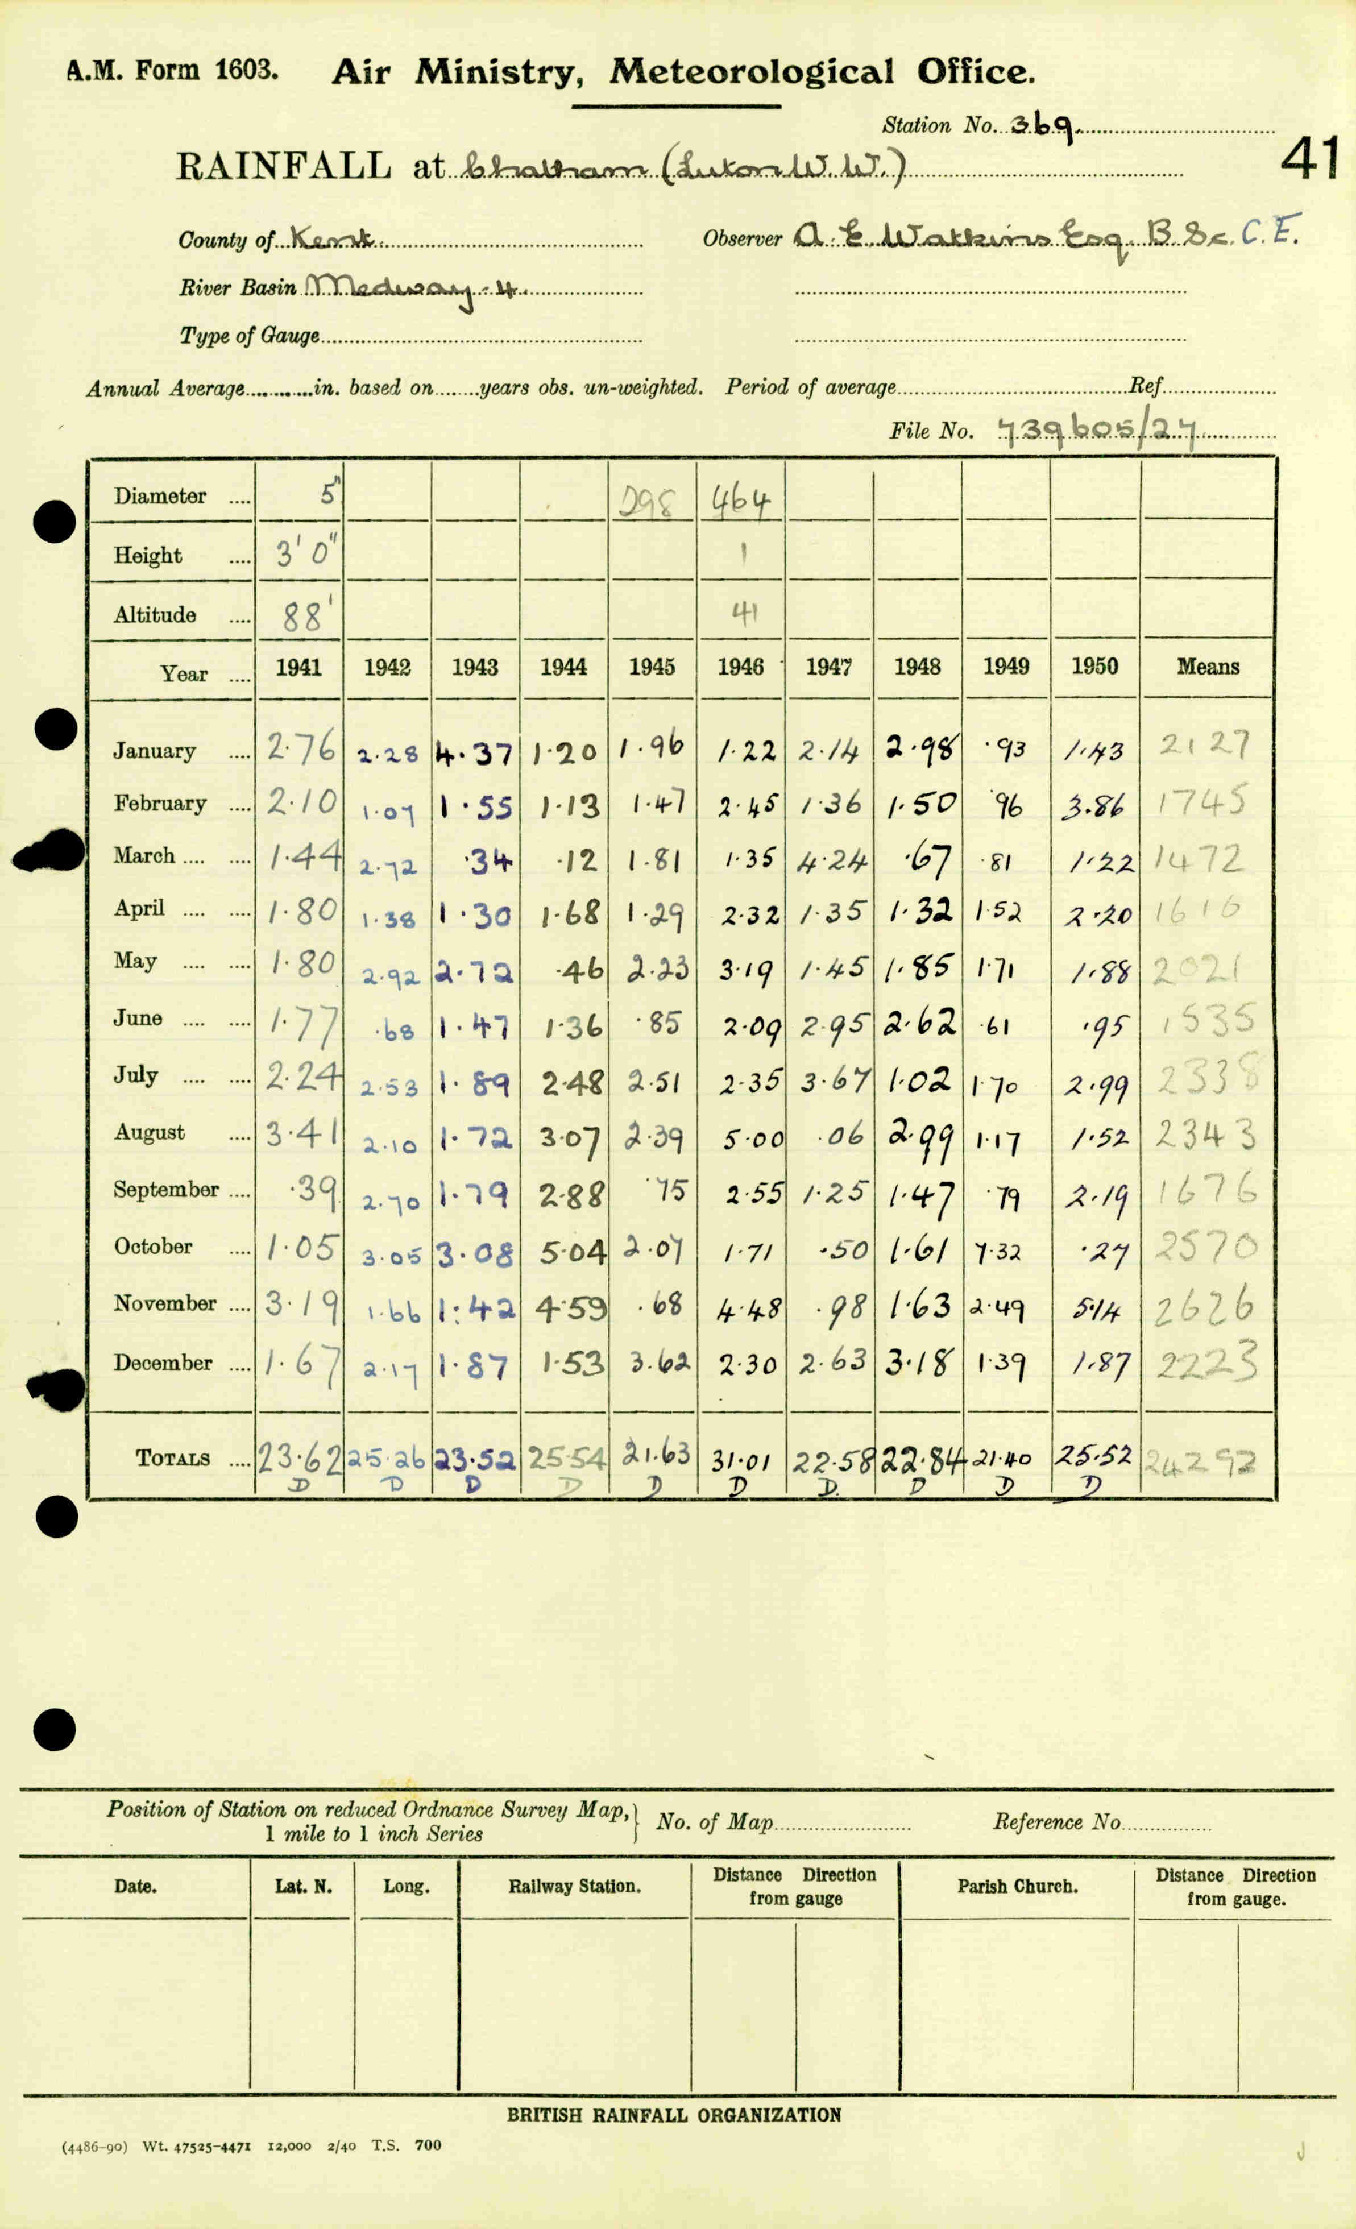 A.M. Form 1603. Air Ministry, Meteorological Office.
Station No. 369.
41
RAINFALL at Chatham (Luton W. W.)
County of Kent. Observer A. E. Watkins Esq. B Sc. C.E.
River Basin Medway. 4.
Type of Gauge
Annual Average in. based on years obs. un-weighted. Period of average Ref.
File No. 739605/27
Diameter .... 5" 298 464
Height .... 3' 0" 1
Altitude .... 88' 41
Year .... 1941 1942 1943 1944 1945 1946 1947 1948 1949 1950 Means
January .... 2.76 2.28 4.37 1.20 1.96 1.22 2.14 2.98 .93 1.43 2127
February .... 2.10 1.07 1.55 1.13 1.47 2.45 1.36 1.50 .96 3.86 1745
March .... .... 1.44 2.72 .34 .12 1.81 1.35 4.24 .67 .81 1.22 1472
April .... .... 1.80 1.38 1.30 1.68 1.29 2.32 1.35 1.32 1.52 2.20 1616
May .... .... 1.80 2.92 2.72 .46 2.23 3.19 1.45 1.85 1.71 1.88 2021
June .... .... 1.77 .68 1.47 1.36 .85 2.09 2.95 2.62 .61 .95 1535
July .... .... 2.24 2.53 1.89 2.48 2.51 2.35 3.67 1.02 1.70 2.99 2338
August .... 3.41 2.10 1.72 3.07 2.39 5.00 .06 2.99 1.17 1.52 2343
September .... .39 2.70 1.79 2.88 .75 2.55 1.25 1.47 .79 2.19 1676
October .... 1.05 3.05 3.08 5.04 2.07 1.71 .50 1.61 7.32 .27 2570
November .... 3.19 1.66 1.42 4.59 .68 4.48 .98 1.63 2.49 5.14 2626
December .... 1.67 2.17 1.87 1.53 3.62 2.30 2.63 3.18 1.39 1.87 2223
TOTALS .... 23.62 25.26 23.52 25.54 21.63 31.01 22.58 22.84 21.40 25.52 24292
D D D D D D D. D D D
Position of Station on reduced Ordnance Survey Map, No. of Map Reference No.
1 mile to 1 inch Series
Date. Lat. N. Long. Railway Station. Distance Direction from gauge Parish Church. Distance Direction from gauge.
BRITISH RAINFALL ORGANIZATION
(4486-90) Wt. 47525-4471 12,000 2/40 T.S. 700